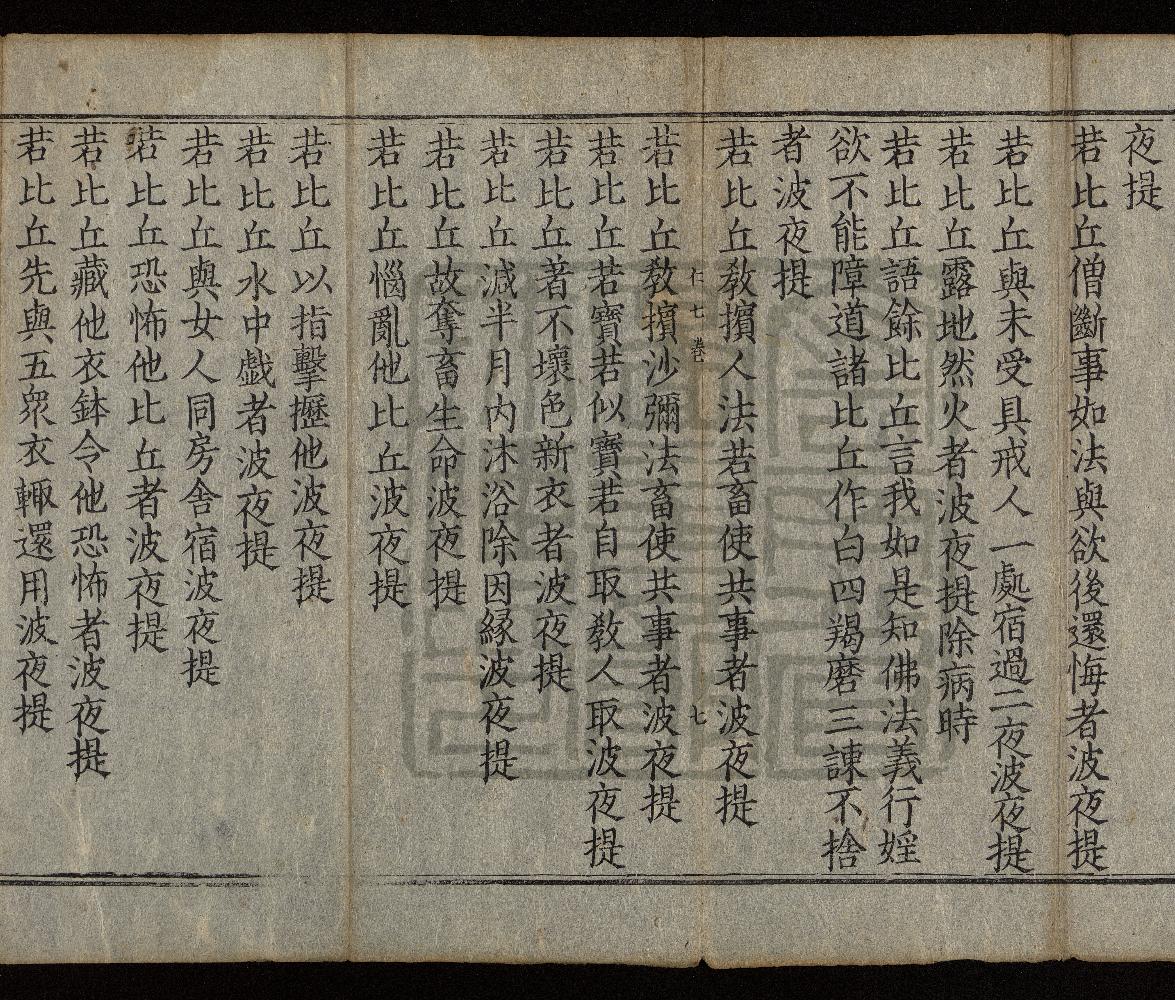 夜提
若比丘僧斷事如法與欲後還悔者波夜提
若比丘與未受具戒人一處宿過二夜波夜提
若比丘露地然火者波夜提除病時
若比丘語餘比丘言我如是知佛法義行婬
欲不能障道諸比丘作白四羯磨三諫不捨
者波夜提
若比丘教擯人法若畜使共事者波夜提
仁七 卷 七
若比丘教擯沙彌法畜使共事者波夜提
若比丘若寶若似寶若自取教人取波夜提
若比丘著不壞色新衣者波夜提
若比丘減半月內沐浴除因緣波夜提
若比丘故奪畜生命波夜提
若比丘惱亂他比丘波夜提
若比丘以指擊攊他波夜提
若比丘水中戲者波夜提
若比丘與女人同房舍宿波夜提
若比丘恐怖他比丘者波夜提
若比丘藏他衣鉢令他恐怖者波夜提
若比丘先與五眾衣輙還用波夜提